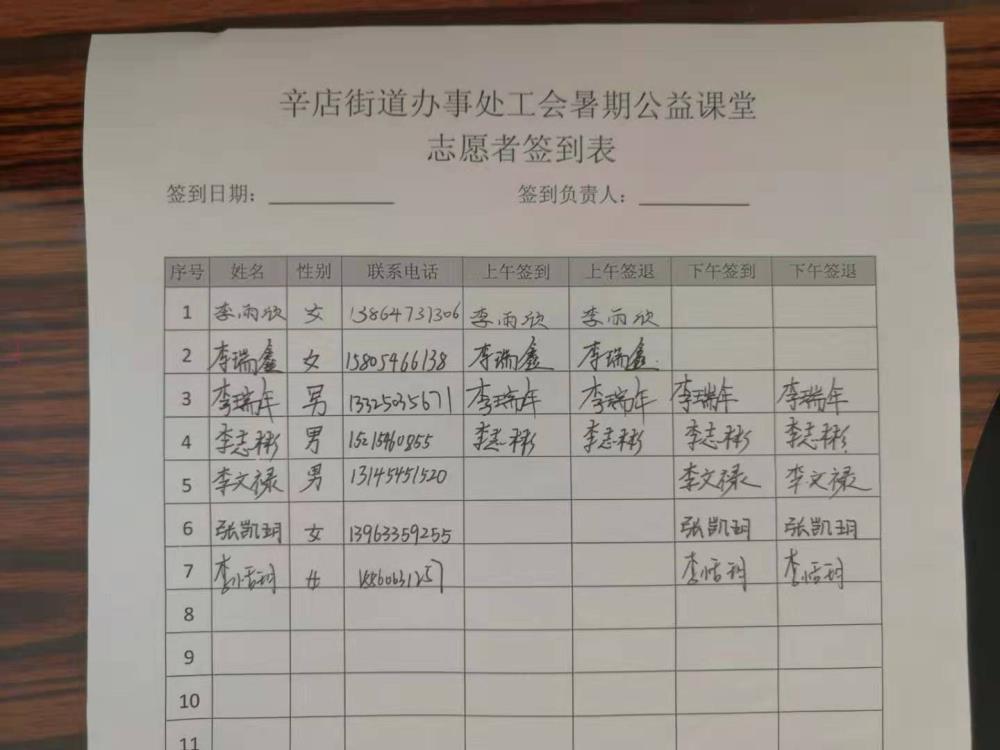 辛店街道办事处工会暑期公益课堂
志愿者签到表
签到日期： 签到负责人：
序号 姓名 性别 联系电话 上午签到 上午签退 下午签到 下午签退
1 李雨欣 女 13864731306 李雨欣 李雨欣
2 李瑞鑫 女 15805466138 李瑞鑫 李瑞鑫
3 李瑞年 男 13325035671 李瑞年 李瑞年 李瑞年 李瑞年
4 李志彬 男 15215460855 李志彬 李志彬 李志彬 李志彬
5 李文禄 男 13145451520 李文禄 李文禄
6 张凯玥 女 13963359255 张凯玥 张凯玥
7 女
8
9
10
11